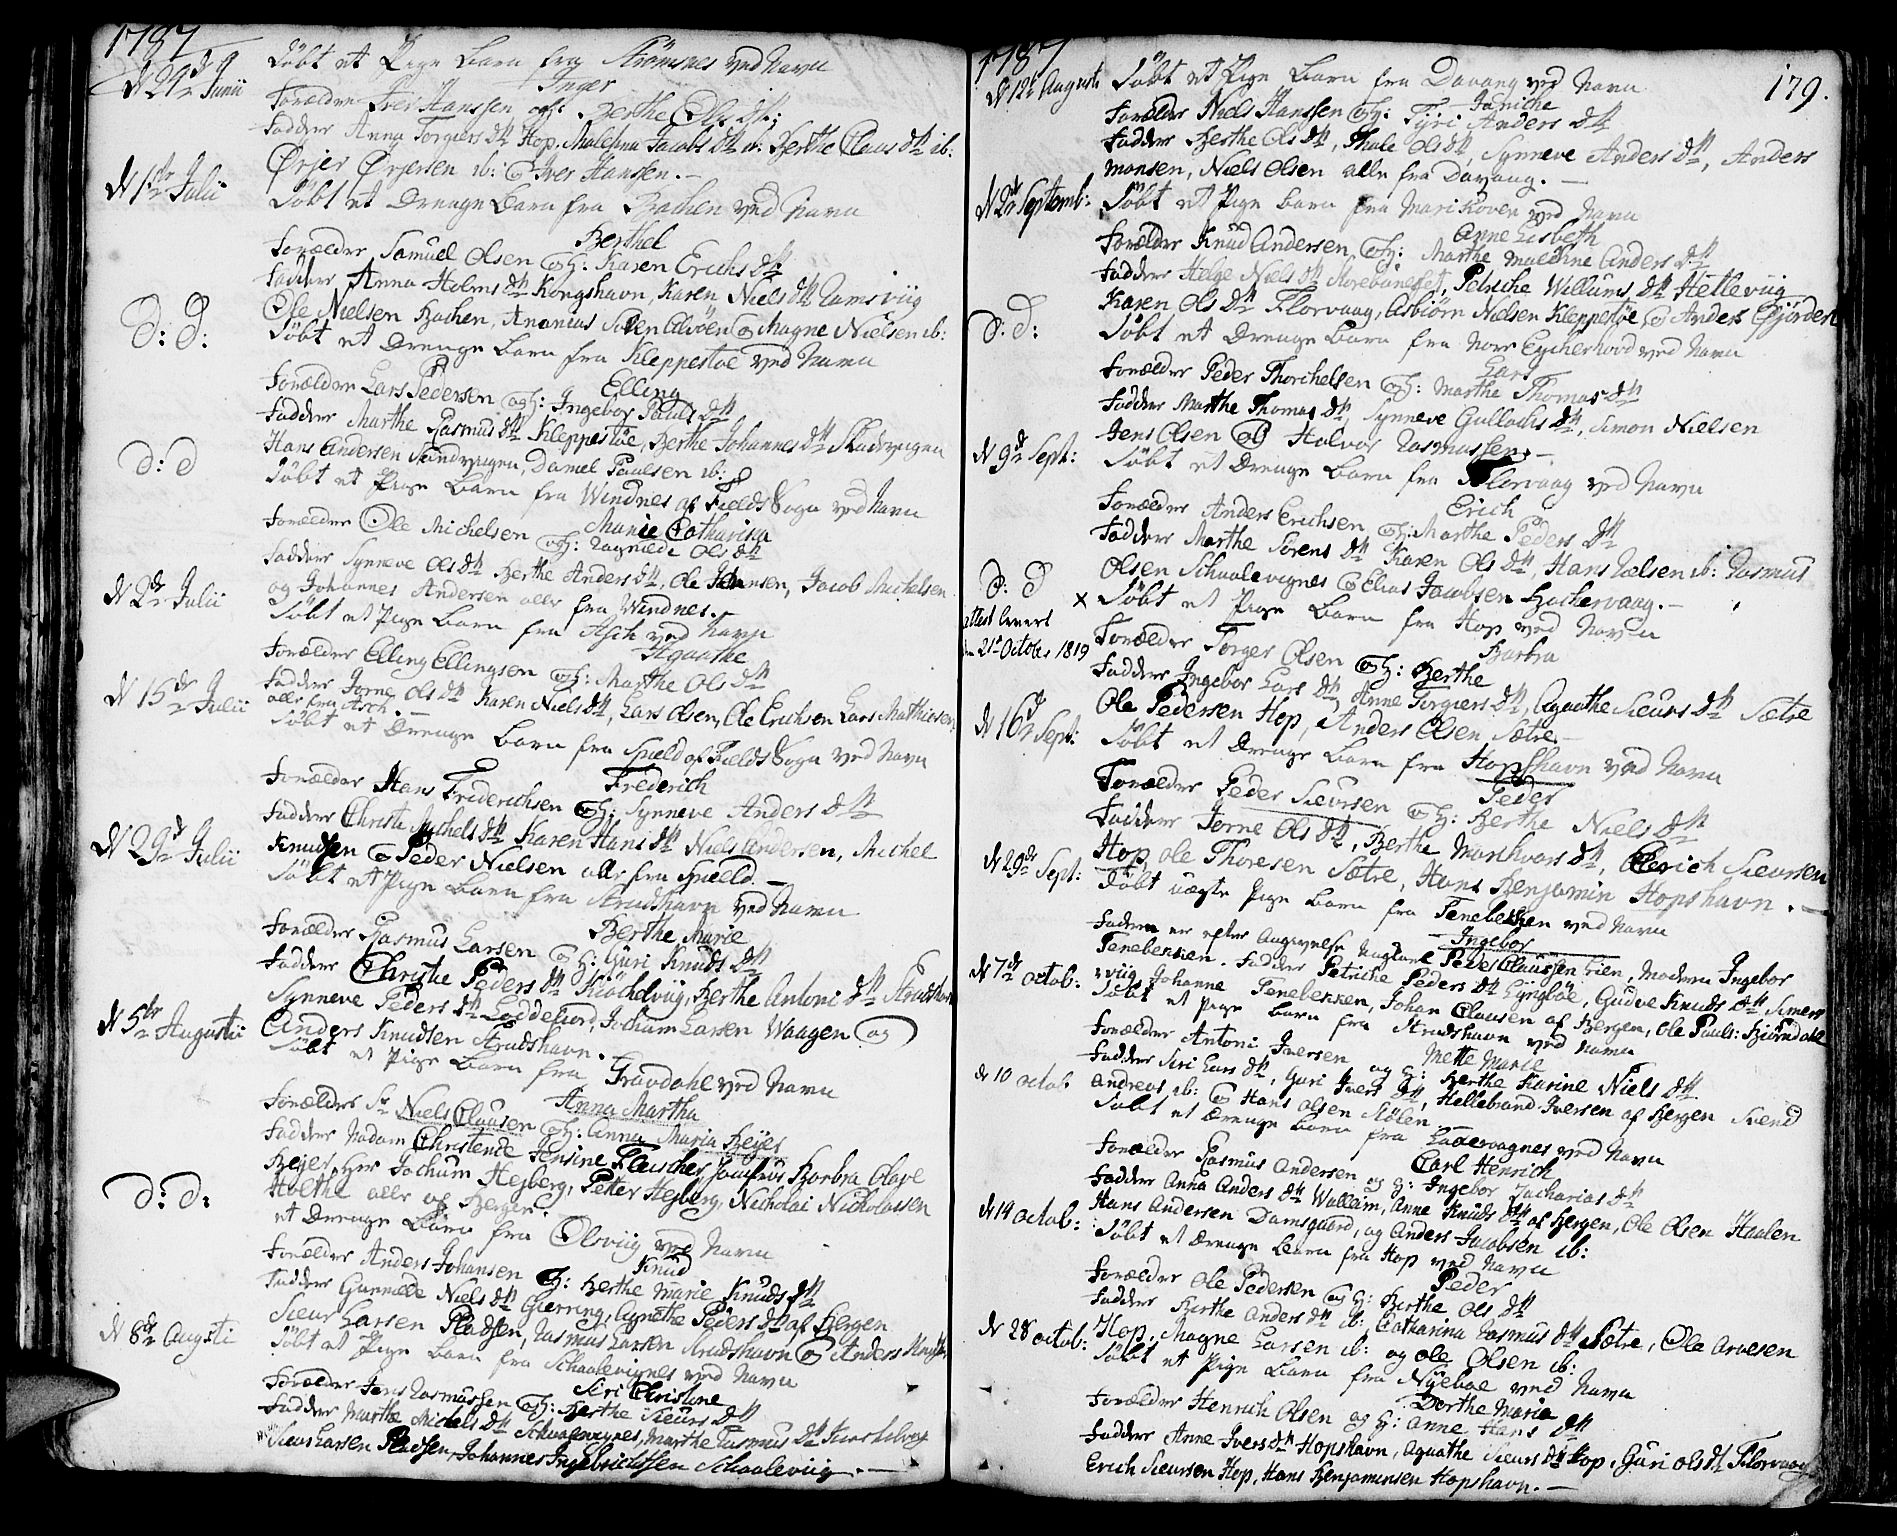 1787
d 24de Junii Döbt et Pige Barn fra Strömsnes ved Navn
Inger
Forældre Iver Hanssen og H: Berthe Ols dtr:
Faddere Anna Torgiers dtr Hop, Malehna Jacobs dtr ib: Berthe Claus dtr ib:
Örjer Örjersen ib: og Iver Hansen.—
d 1ste Julii Döbt et Drenge Barn fra Bachen ved Navn
Berthel
Forældre Samuel Olsen og H: Karen Erichs dtr
Faddere Anna Holms dtr Kongshavn, Karen Niels dtr Ramsviig
Ole Nielsen Bachen, Ananias Alvöen og Magne Nielsen ib:
D: D: Döbt et Drenge Barn fra Kleppestöe ved Navn
Elling
Forældre Lars Pedersen og H: Ingebor Pauls dtr
Faddere Marthe Rasmus dtr Kleppestöe, Berthe Johannes dtr
Hans Andersen Daniel Paulsen ib:
D: D Döbt et Pige Barn fra Windnes af Fields Sogn ved Navn
Marie Catharina
Forældre Ole Michelsen og H: Ragnilde Ols dtr
Faddere Synneve Ols dtr Berthe Anders dtr, Ole Jacob Michelsen
og Johannes Andersen alle fra Windnes.
d 2de Julii Döbt et Pige Barn fra Asch ved Navn
Agaathe
Forældre Elling Ellingsen og H: Marthe Ols dtr
Faddere Jorne Ols dtr Karen Niels dtr, Lars Olsen, Ole Erichsen Lars Mathiesen
alle fra Asch.—
d 15de Julii Döbt et Drenge Barn fra Spield af Fields Sogn ved Navn
Frederich
Forældre Hans Friderichsen og H: Synneve Anders dtr
Faddere Christi Michels dtr Karen Hans dtr Niels Andersen, Michel
Knudsen og Peder Nielsen alle fra Spield.—
d 29de Julii Döbt et Pige Barn fra Strudshavn ved Navn
Berthe Marie
Forældre Rasmus Larsen og H: Guri Knuds dtr
Faddere Christie Peders dtr Berthe Antoni dtr Strudshavn
Synneve Peders dtr Loddefiord, Jochum Larsen Waagen og
Anders Knudsen Strudshavn.
d 5te Augustii Döbt et Pige Barn fra Gravdahl ved Navn
Anna Martha
Forældre Sr Niels Clausen og H: Anna Maria Beyer
Faddere Madam Christence Fleischer Jomfrue Barbra Olave
Beyer, Her Jochum Hejberg, Petter Hejberg, Nicholai Nicholaisen
Holthe alle af Bergen.
D: D: et Drenge Barn fra Olsviig ved Navn
Knud
Forældre Anders Johansen og H: Berthe Marie Knuds dtr
Faddere Gunnilde Niels dtr Gierring, Agnethe Peders dtr af Bergen
Sieur Larsen Pladsen, Rasmus Larsen Strudshavn og Anders
d 8de Augusti Döbt et Pige Barn fra Schaaleviignes ved Navn
Siri Christine
Forældre Jens Rasmussen og H: Berthe Sieurs dtr
Faddere Marthe Michels dtr Marthe Rasmus dtr
Sieur Larsen Pladsen, Johannes Ingebrichtsen Schaaleviig.—
1787
179.
d 12te Augusti Döbt et Pige Barn fra Davang ved Navn
Janiche
Forældre Niels Hanssen og H: Tyri Anders dtr
Faddere Berthe Ols dtr, Thale Ols dtr, Synneve Anders dtr, Anders
Monsen, Niels Olsen alle fra Davang.—
d 2de Septemb: Döbt et Pige Barn fra Marikoven ved Navn
Anne Lisbeth
Forældre Knud Andersen, og H: Marthe Maldine Anders dtr
Faddere Helge Niels dtr Petriche Willums dtr Hetleviig
Karen Ols dtr Florvaag, Asbiörn Nielsen Kleppestöe, og Anders
D: D: Döbt et Drenge Barn fra Nore Eycherhovd ved Navn
Lars
Forældre Peder Thorchelsen og H: Marthe Thomas dtr
Faddere Marthe Thomas dtr, Synneve Gullachs dtr, Simon Nielsen
Jens Olsen og Halvor Rasmussen.—
d 9de Sept: Döbt et Drenge Barn fra Florvaag ved Navn
Erich
Forældre Anders Erichsen og H: Marthe Peders dtr
Faddere Marthe Sörens dtr Karen Ols dtr, Hans Nielsen ib: Rasmus
Olsen Schaalevignes og Elias Jacobsen Bachervaag.—
D: D x Döbt et Pige Barn fra Hop ved Navn
Attest leveret
21de October 1819
Barbra
Forældre Torger Olsen og H: Berthe
Faddere Ingebor Lars dtr, Anne Torgiers dtr, Agaathe Sieurs dtr Sætre
Ole Pedersen Hop, Anders Olsen Sætre.
d 16de Sept: Döbt et Drenge Barn fra Hopshavn ved Navn
Peder
Forældre Peder Sieursen og H: Berthe Niels dtr
Faddere Jorne Ols dtr, Berthe Markvors dtr, Erich Sieursen
Hop, Ole Thoresen Sætre, Hans Benjamin Hopshavn.—
d 29de Sept: Döbt uægte Pige Barn fra Tenebekken ved Navn
Ingebor
Faderen er efter Angivelse Ungkarl Peder Claussen Lien, Moderen Ingebor
Tenebekken. Faddere Petriche Peders dtr Lyngböe, Gudve Knuds dtr
Johanne Tenebekken, Johan Clausen af Bergen, Ole Pauls: Biörndahl
d 7de Octob: Döbt et Pige Barn fra Strudshavn ved Navn
Mette Marie
Forældre Antoni Iversen og H: Berthe Karine Niels dtr
Faddere Siri Lars dtr, Guri Ivers dtr, Hellebrand Iversen af Bergen Svend
Andreas ib: og Hans Olsen Stölen
d 10 Octob: Döbt et Drenge Barn fra ved Navn
Carl Henrich
Forældre Rasmus Andersen og H: Ingebor Zacharias dtr
Faddere Anna Anders dtr Walleim, Anne Knuds dtr af Bergen, Ole Olsen Haalen
Hans Andersen Damsgaard, og Anders Jacobsen ib:
d 14 Octob: Döbt et Drenge Barn fra Hop ved Navn
Peder
Forældre Ole Pedersen og H: Berthe Ols dtr
Faddere Berthe Anders dtr ib: Catharina Rasmus dtr Sætre, Ole Arvesen
Hop, Magne Larsen ib: og Ole Olsen ib:
d 28 Octob: Döbt et Pige Barn fra Nyeböe ved Navn
Berthe Maria
Forældre Henrich Olsen og H: Anne Hans dtr
Faddere Anne Ivers dtr Hopshavn, Agaathe Sieurs dtr Hop, Guri Ols dtr Florvaag
Erich Sieursen Hop, Hans Benjaminsen Hopshavn.—